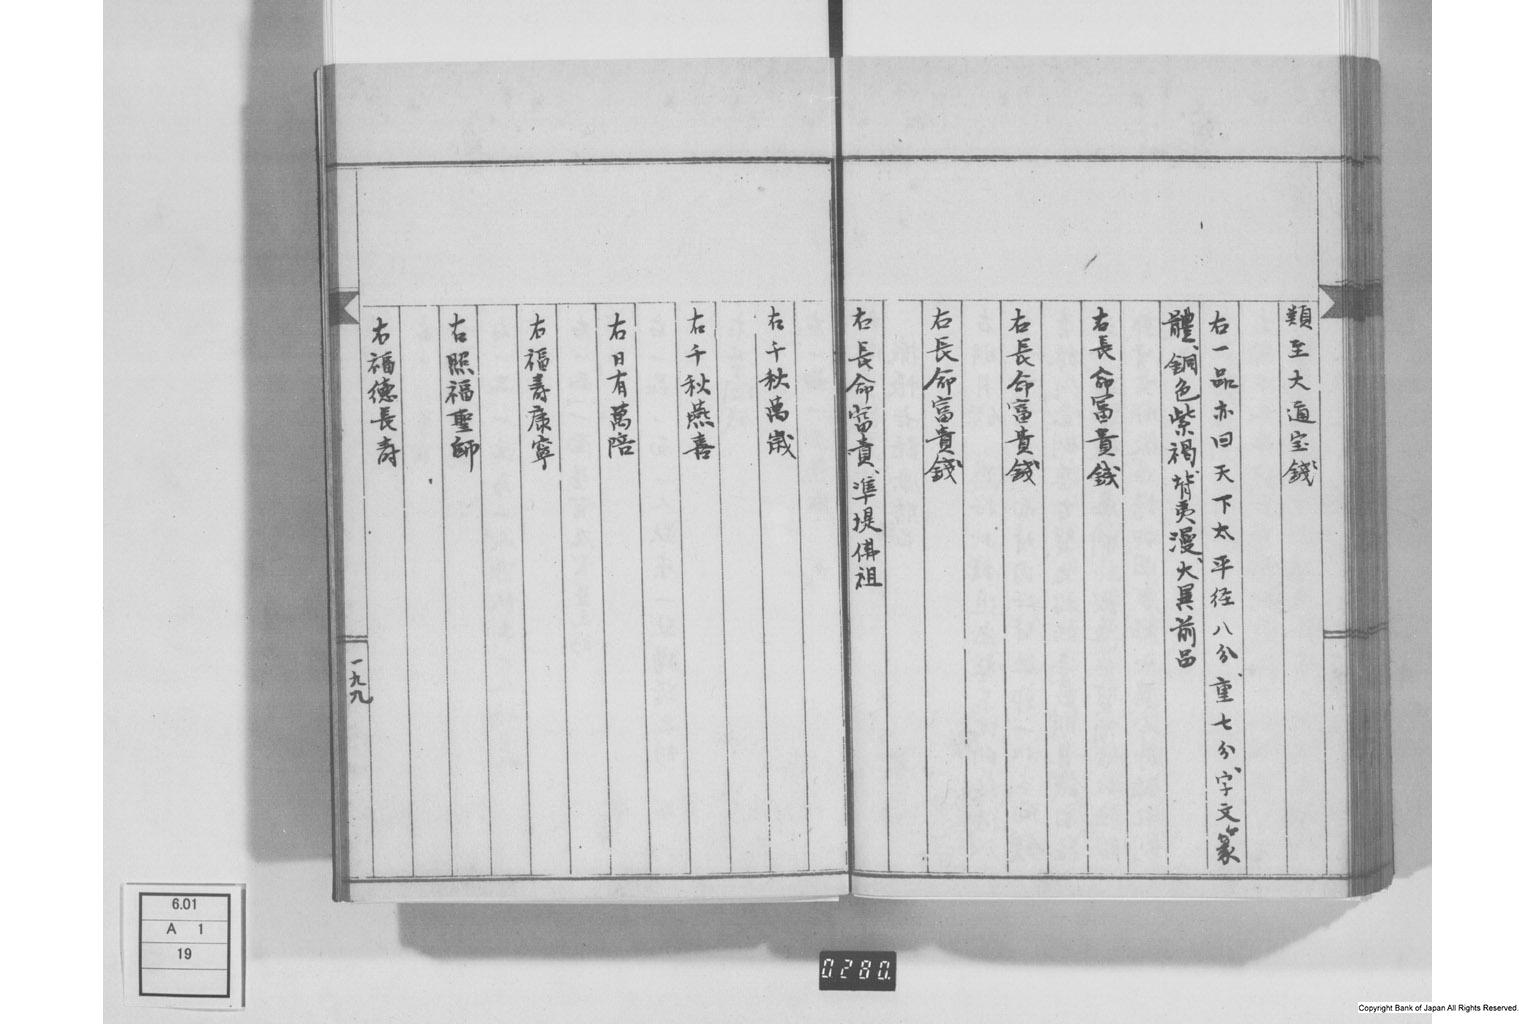 類至大通宝錢
右一品亦曰天下太平径八分重七分字文篆
體銅色紫褐背夷漫大異前品
右長命富貴錢
右長命富貴錢
右長命富貴錢
右長命富貴準提佛祖
右千秋萬歳
右千秋燕喜
右日有萬陪
右福壽康寧
右照福聖師
右福德長壽
一九九
6.01
A 1
19
0280.
Copyright Bank of Japan All Rights Reserved.